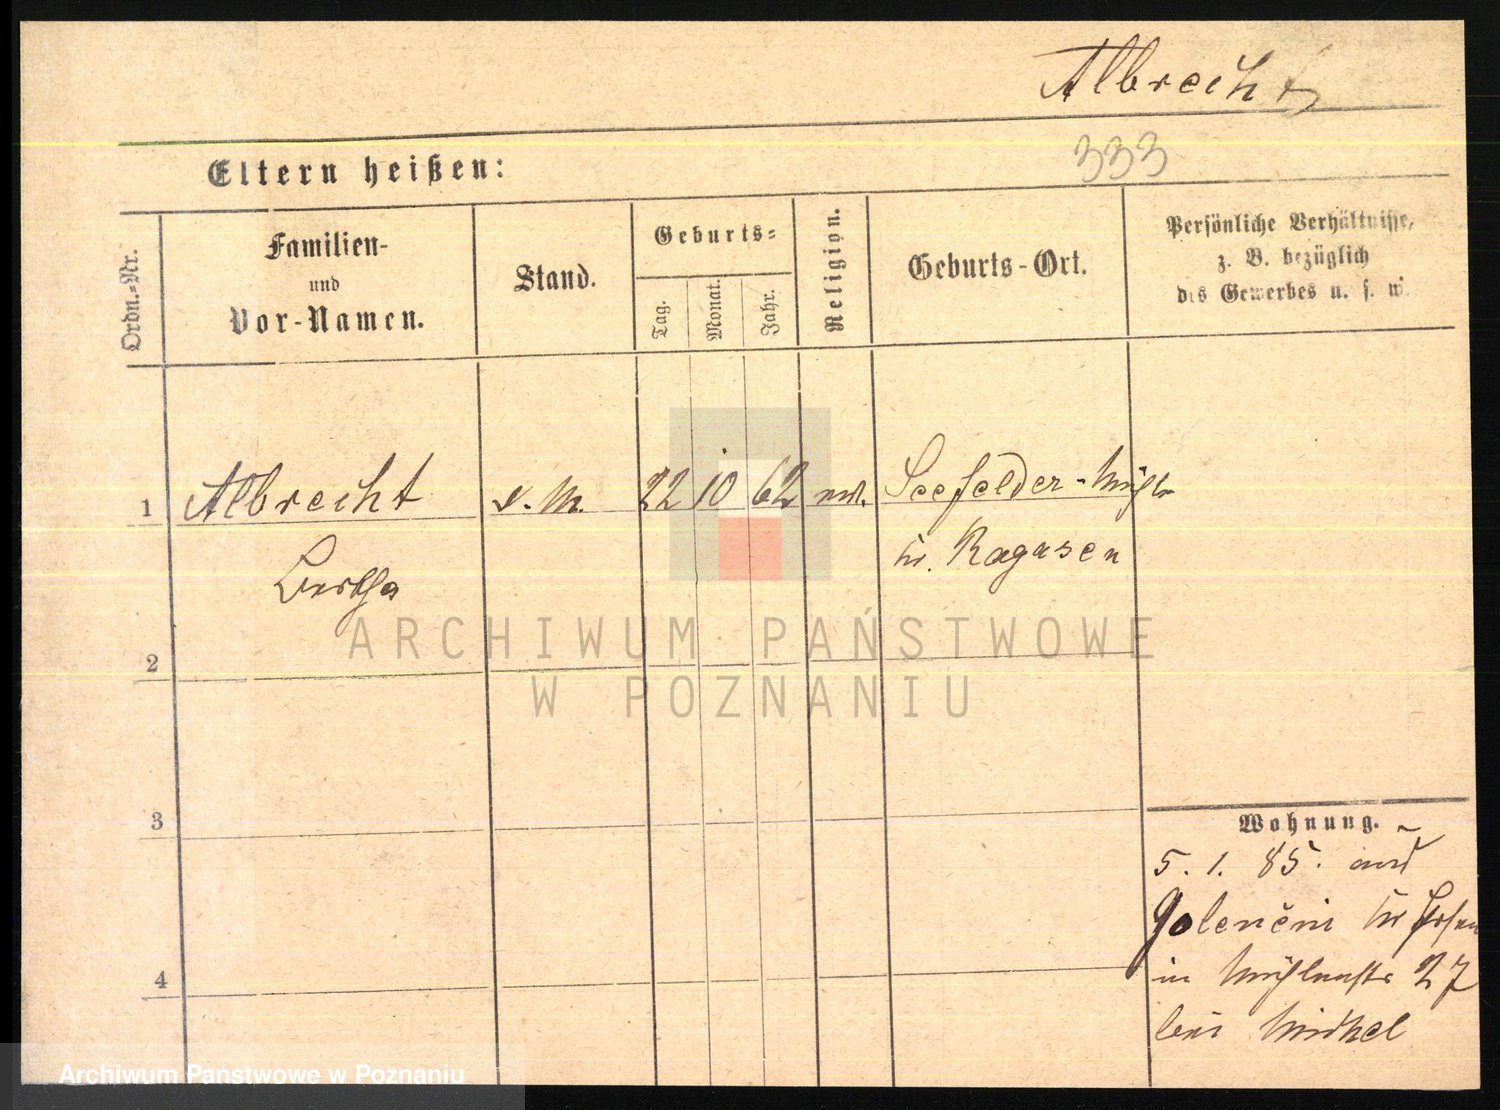 Albrecht
333
Eltern heißen:
Ordn.=Nr.
Familien-
und
Vor-Namen.
Stand.
Geburts=
Tag.
Monat.
Jahr.
Religion.
Geburts-Ort.
Persönliche Verhältnisse,
z. B. bezüglich
des Gewerbes u. s. w.
1 Albrecht 22 10 62 Seefelder-Mühle
Bertha
Kr. Rogasen
2
ARCHIWUM PAŃSTWOWE
W POZNANIU
3
Wohnung.
5. 1. 85. aus
Kr Posen
4
in 27
bei
Archiwum Państwowe w Poznaniu